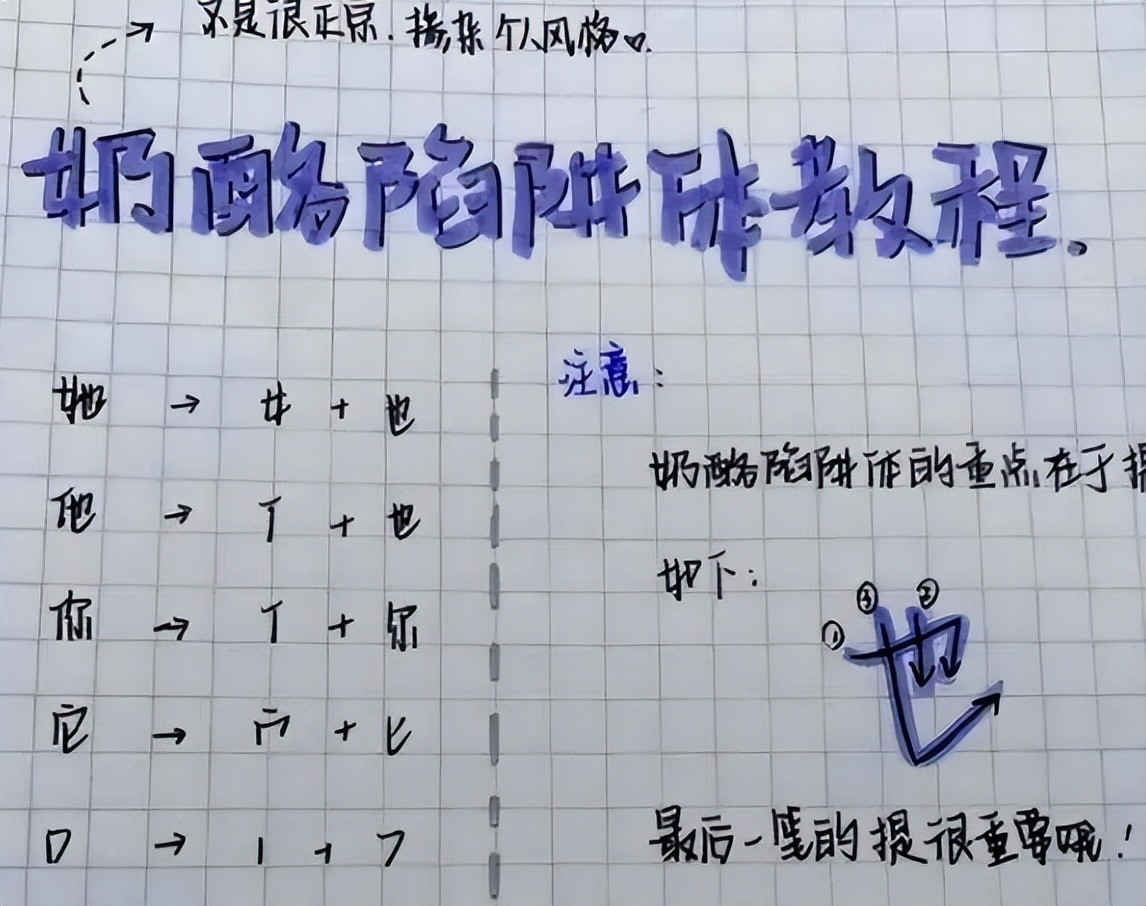 不是很正宗.掺杂个人风格。
奶酪陷阱体教程。
她 → 女 + 也
他 → 亻 + 也
你 → 亻 + 尔
它 → 宀 + 匕
口 → 丨 + 𠃌
注意:
奶酪陷阱体的重点在于提
如下:
① ③ ②
也
最后一笔的提很重要哦!